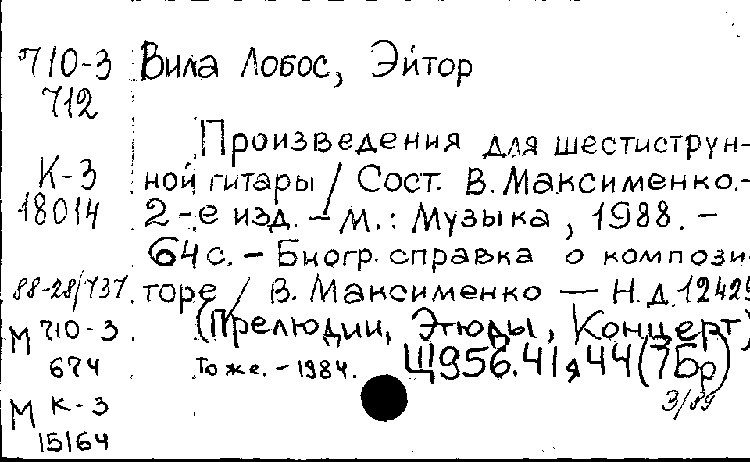 710-3 Вила Лобос, Эйтор
712
Произведения для шеститрун-
К-3 ной гитары / Сост. В. Максименко.-
18014 2-е изд. - М.: Музыка, 1988. -
64 с. - Биогр. справка о компози-
88-28/737. торе / В. Максименко — Н.д. 12425
М 710-3 (Прелюдии, Этюды, Концерт)
674 То же. - 1984. Щ956.41я44(7Бр)
М К-3 3/89
15164